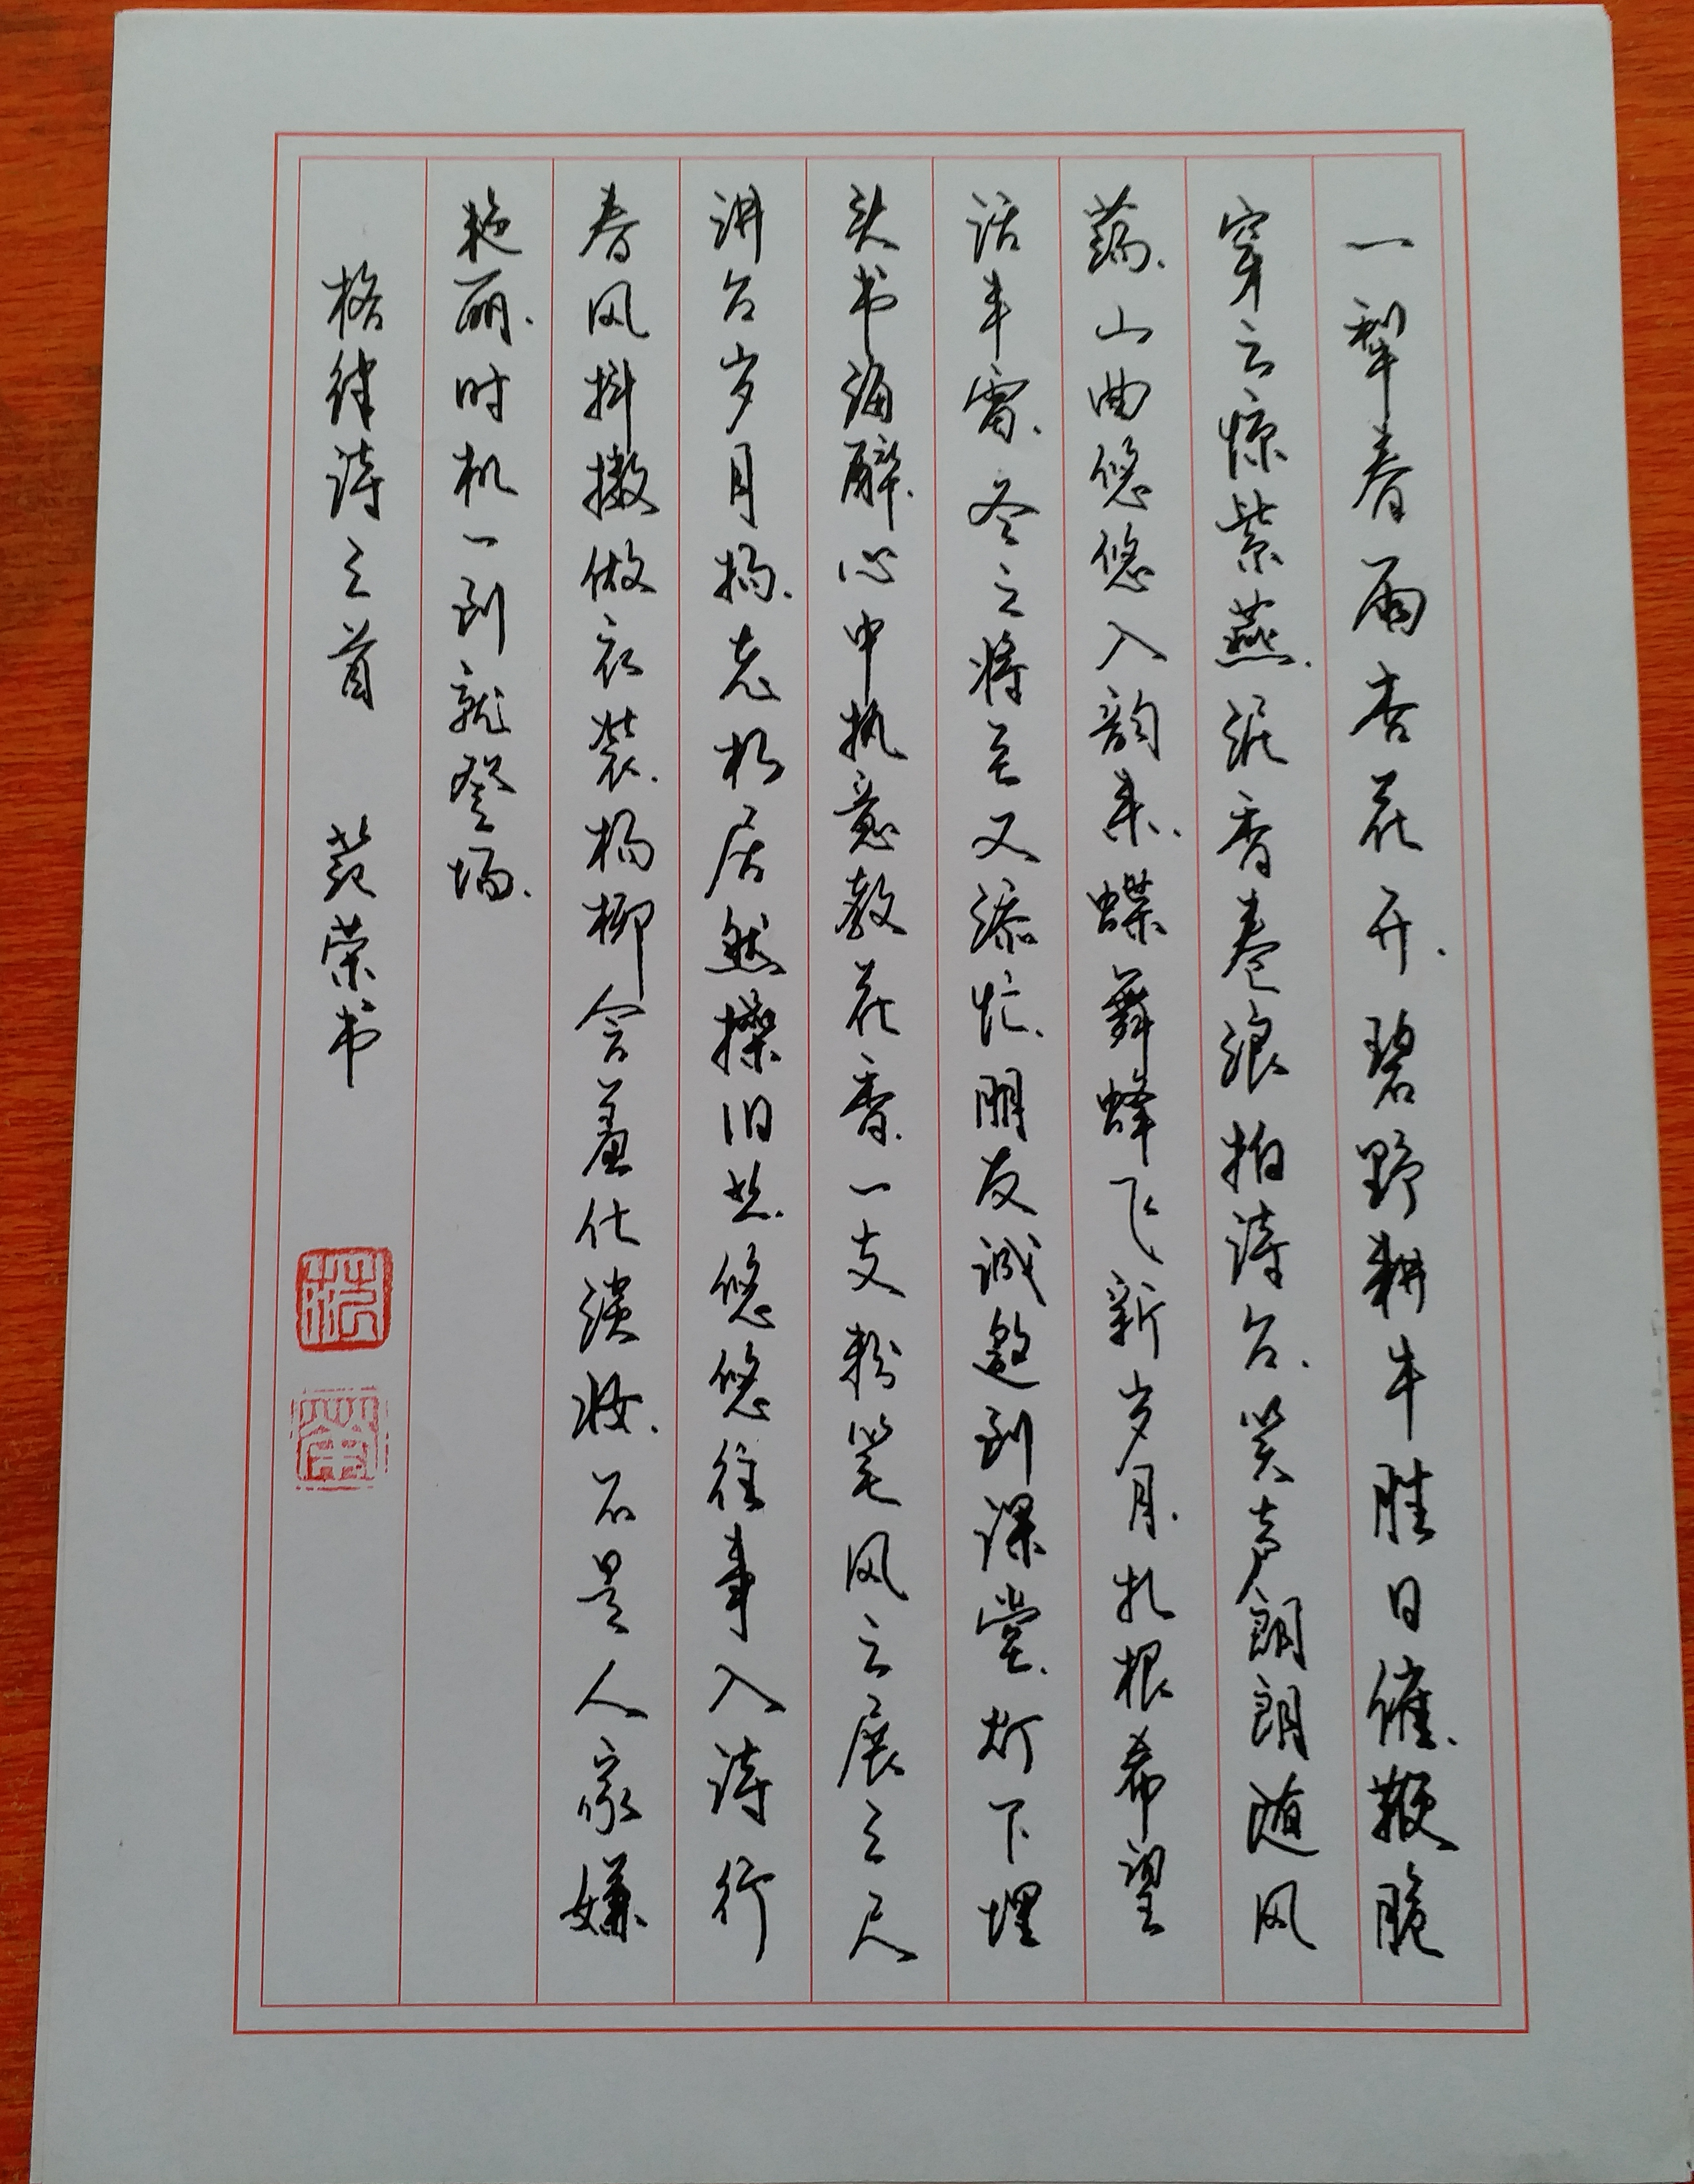 一犁春雨杏花开.碧野耕牛胜日催.鞭脆
穿云惊紫燕.泥香卷浪拍诗台.笑声朗朗随风
荡.山曲悠悠入韵来.蝶舞蜂飞新岁月.扎根希望
话丰.冬之将至又添忙.朋友诚邀到课堂.灯下埋
头书海醉.心中执意教花香.一支粉笔风云展.三尺
讲台岁月扬.老杉居然操旧业.悠悠往事入诗行
春风抖擞做衣装.杨柳含羞仕淡妆.不是人家嫌
艳丽.时机一到就登场.
格律诗三首 范荣书